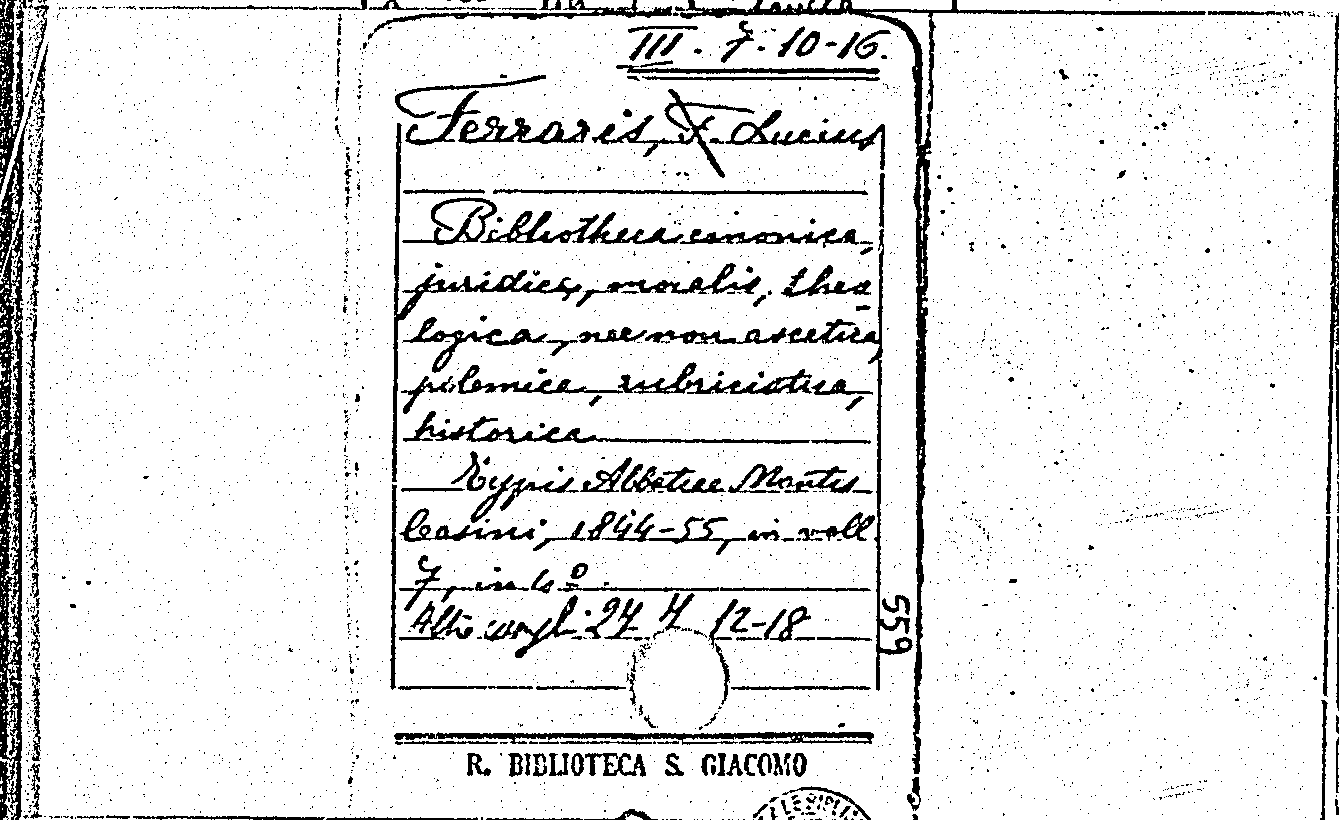 III. 7. 10-16.
Ferraris, F. Lucius
Bibliotheca canonica,
juridica, moralis, theo
logica, nec non ascetica,
polemica, rubricistica,
historica
Typis Abbatiae Montis
Casini, 1844-55, in voll
7, in 4º.
Altro 24 4 12-18
559
R. BIBLIOTECA S. GIACOMO